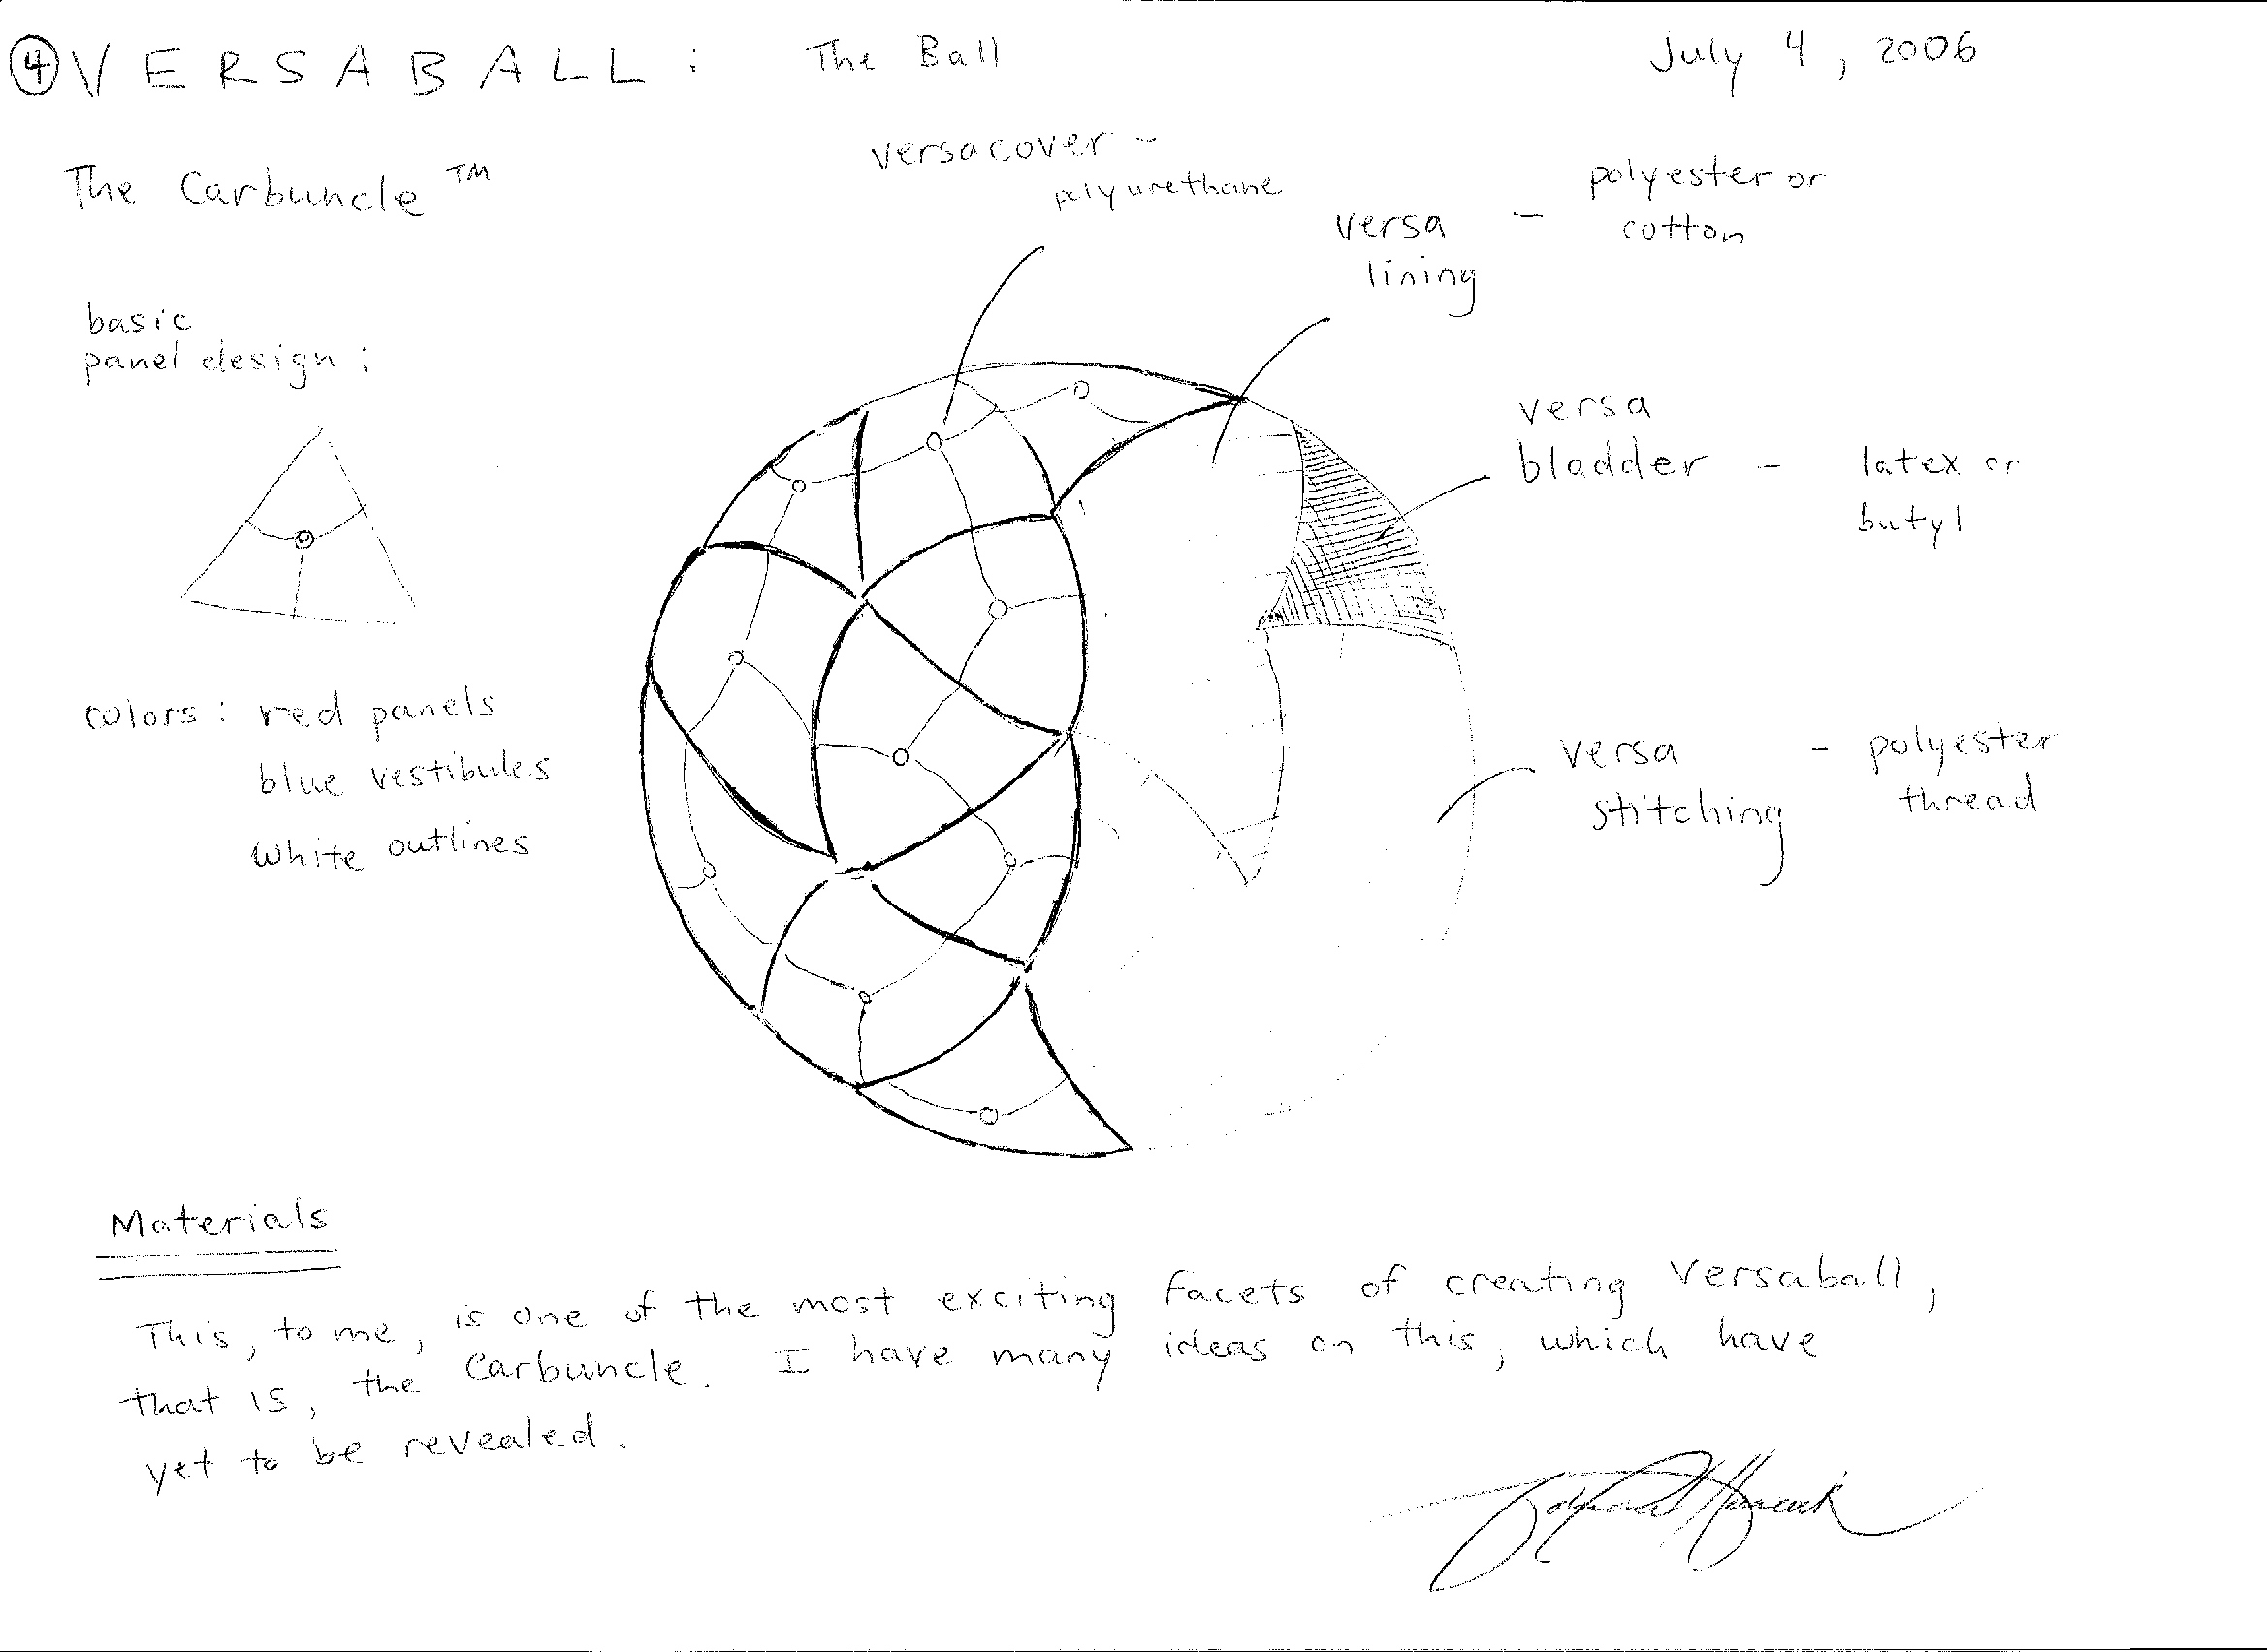 4 VERSABALL: The Ball
July 4, 2006
The Carbuncle™
versacover -
polyurethane
versa
lining
- polyester or
cotton
basic
panel design:
versa
bladder
- latex or
butyl
colors: red panels
blue vestibules
white outlines
versa
stitching
- polyester
thread
Materials
This, to me, is one of the most exciting facets of creating Versaball,
that is, the Carbuncle. I have many ideas on this, which have
yet to be revealed.